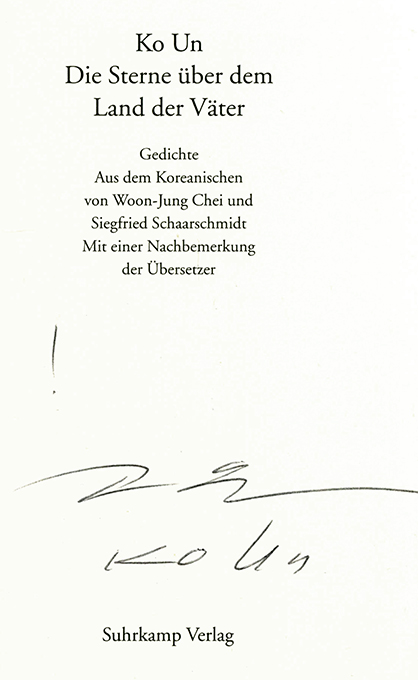 Ko Un
Die Sterne über dem
Land der Väter
Gedichte
Aus dem Koreanischen
von Woon-Jung Chei und
Siegfried Schaarschmidt
Mit einer Nachbemerkung
der Übersetzer
!
Ko Un
Suhrkamp Verlag